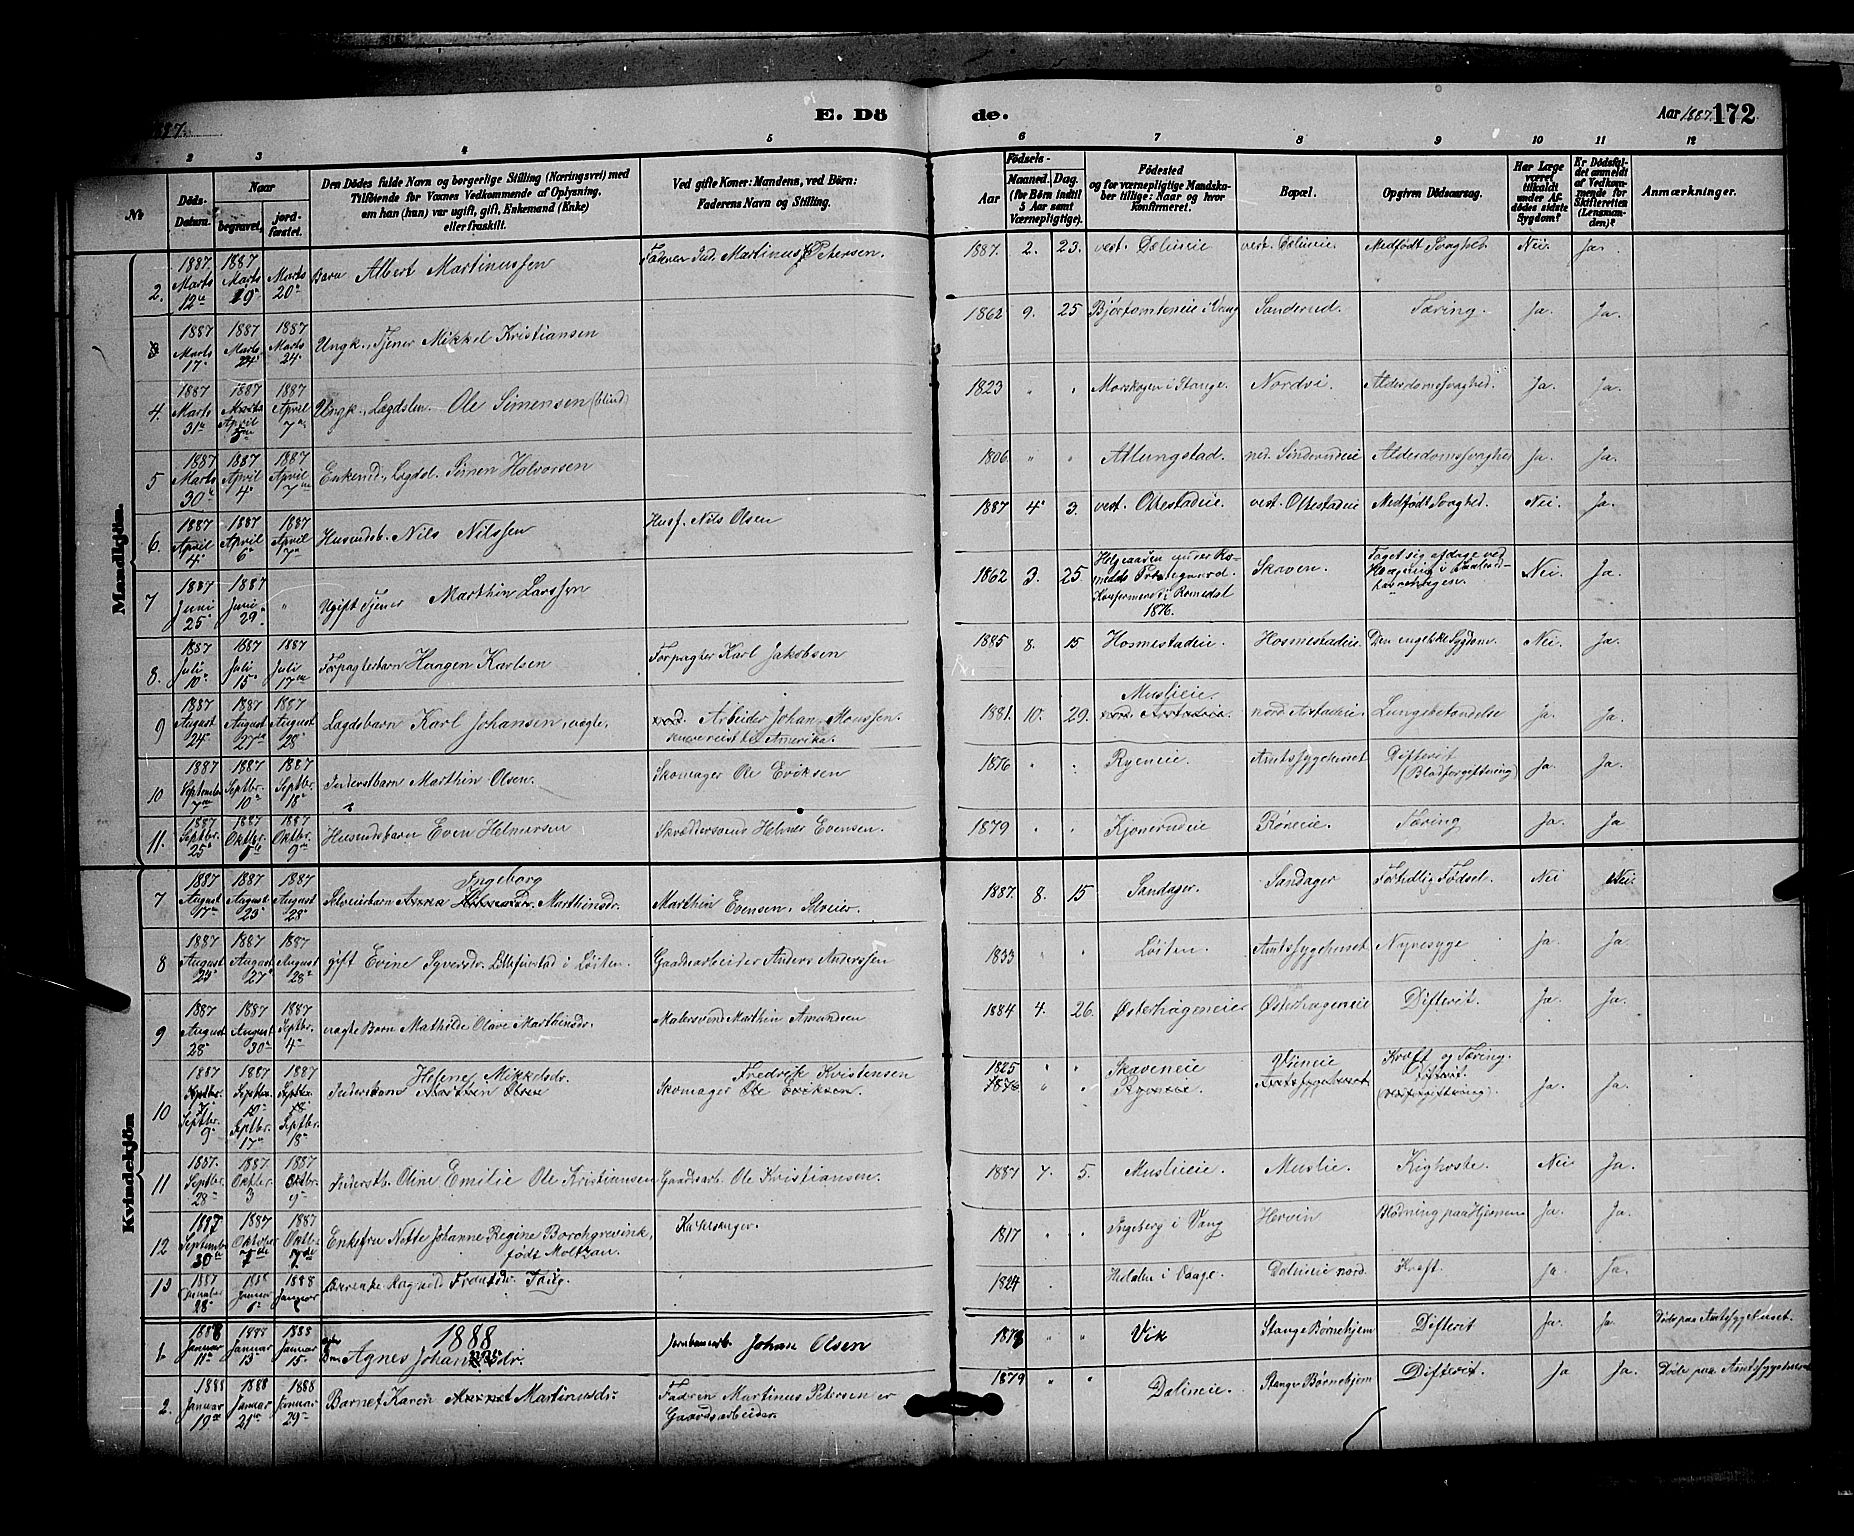 1887.
E. Dö de.
Aar 1887. 172
2 3 4 5 6 7 8 9 10 11 12
No
Döds-Datum.
Naar
begravet,
jord-fæstet.
Den Dödes fulde Navn og borgerlige Stilling (Næringsvei) med
Tilföiende for Voxnes Vedkommende af Oplysning,
om han (hun) var ugift, gift, Enkemand (Enke)
eller fraskilt.
Ved gifte Koner: Mandens, ved Börn:
Faderens Navn og Stilling.
Födsels-
Aar
Maaned. Dag.
(for Börn indtil
5 Aar samt
Værnepligtige).
Födested
og for værnepligtige Mandska-
ber tillige: Naar og hvor
konfirmeret.
Bopæl.
Opgiven Dödsaarsag.
Har Læge
været
tilkaldt
under Af-
dödes sidste
Sygdom?
Er Dödsfal-
det anmeldt
af Vedkom-
mende for
Skifteretten
(Lensman-
den)?
Anmærkninger.
Mandkjön.
2. 1887. Marts 12te 1887 Marts 19de Marts 20de Barn Albert Martinussen Martinus Petersen. 1887. 2. 23. vest. Dælineie vest. Dælineie Medfödt Svaghed Nei. Ja.
3 1887 Marts 17de 1887 Marts 24 1887 Marts 24 Ungk., Tjener Mikkel Kristiansen 1862 9. 25 i Vang Sanderud. Tæring. Ja. Ja.
4. 1887 Marts 31te 1887 April 5te 1887 April 7de Ungk., Lægdslem. Ole Simensen (blind) 1823 " " Morskogen i Stange. Nordvi. Alderdomssvaghed. Ja. Ja.
5 1887 Marts 30te 1887 April 4 1887 April 7de Enkemd., Lægdsl. Simen Halvorsen 1806. " " Atlungstad. ned. Sinderudeie Alderdomssvaghed Ja. Ja.
6. 1887 April 4 1887 April 6te 1887 April 7de Husmdsb. Nils Nilssen Husf. Nils Olsen 1887 4 3. vest. Ottestadeie vest. Ottestadeie Medfödt Svaghed. Nei Ja.
7 1887 Juni 25 1887 Juni 29 " Ugift Tjener Marthin Larssen 1862 3. 25. Helgeaasen under Ro-
medals Præstegaard.
Konfirmeret i Romedal
1876. Skaven. Taget sig afdage ved
Hængning i Nei. Ja.
8. 1887 Juli 10de 1887 Juli 15de 1887 Juli 17de Forpagterbarn Haagen Karlsen Forpagter Karl Jakobsen 1885 8. 15 Hosmestadeie. Hosmestadeie. Den engelske Sygdom. Nei. Ja.
9 1887 August 24 1887 August 27de 1887 August 28 Lægdsbarn Karl Johansen, uægte. Arbeider Johan Monssen.
senere reist til Amerika. 1881. 10. 29. Muslieie.
nord. Arstadeie nord. Arstadeie. Lungebetændelse Ja. Ja.
10 1887 September 7de 1887 Septbr. 10de 1887 Septbr. 18de Inderstbarn Marthin Olsen. Skomager Ole Eriksen 1876 " " Ryeneie. Amtssygehuset Difterit
(Blodforgiftning) Ja. Ja.
11. 1887 Septbr. 25 1887 Oktbr. 1887 Oktbr. 9de Husmdsbarn Even Helmersen Skræddersvend Helmer Evensen. 1879 " " Kjonerudeie Röneie. Tæring Ja. Ja
Kvindekjön
7 1887 August 17de 1887 August 23 1887 August 28 Selveierbarn Anna Ingeborg Marthinsdr. Marthin Evensen, Selveier. 1887. 8. 15 Sandager. Sandager Forhidlig Fødsel. Nei Nei.
8 1887 August 23 1887 August 27 1887 August 28 gift Evine Syversdr. i Løiten. Gaardsarbeider Anders Anderssen 1833 " " Løiten. Amtssygehuset Nyresyge Ja. Ja.
9 1887 August 28 1887 August 30te 1887 Septbr. 4 uægte Barn Mathilde Olave Marthinsdr. Malersvend Marthin Amundsen 1884 4. 26. Østerhageneie Østerhageneie Difterit. Ja. Ja.
10 1887 Septbr. 7 Septbr. 9 1887 Septbr. 10 Septbr. 17 1887 Septbr. 18 Septbr. 18 Inderstbarn Helene Mikkelsdr.
Marthin Olsen Fredrik Kristensen
Skomager Ole Eriksen. 1825
1876 " " Skaveneie
Ryeneie Viineie
Amtssygehuset Kræft og Tæring.
Difterit.
(Blodforgiftning). Ja. Ja.
11 1887. Septbr. 28 1887. Oktbr. 3 1887 Oktbr. 9 Inderstb. Oline Emilie Ole Kristiansen Gaardsarb. Ole Kristiansen. 1887 7. 5. Muslieie. Muslie. Kighoste. Nei Ja.
12 1887 September 30te 1887 Oktober 7de 1887 Oktbr. 7de Enkefru Nette Johanne Regine Borchgrevink,
født Moltzau. Kirkesanger. 1817 " " Ingeberg i Vang Hervin Blødning paa Hjernen Ja. Ja.
13 1887 28 1888 Januar 6 1888 Januar Ragnild Frantsdr. 1824 i Vaage. Dalineie nord. Kræft. Ja. Ja.
1888
1. 1888 Januar 11te 1888 Januar 15 1888 Januar 15 Agnes Johansdr. Jernbanearb. Johan Olsen 1878 " " Vik Stange Børnehjem Difterit Ja. Ja. Døde paa Amtssygehuset.
2. 1888 Januar 19de 1888 Januar 21de 1888 Januar 29de Barnet Karen Martinusdr. Faderen Martinus Petersen er
Gaardsarbeider. 1879 " " Dalineie. Stange Børnehjem Difterit. Ja Ja. Døde paa Amtssygehuset